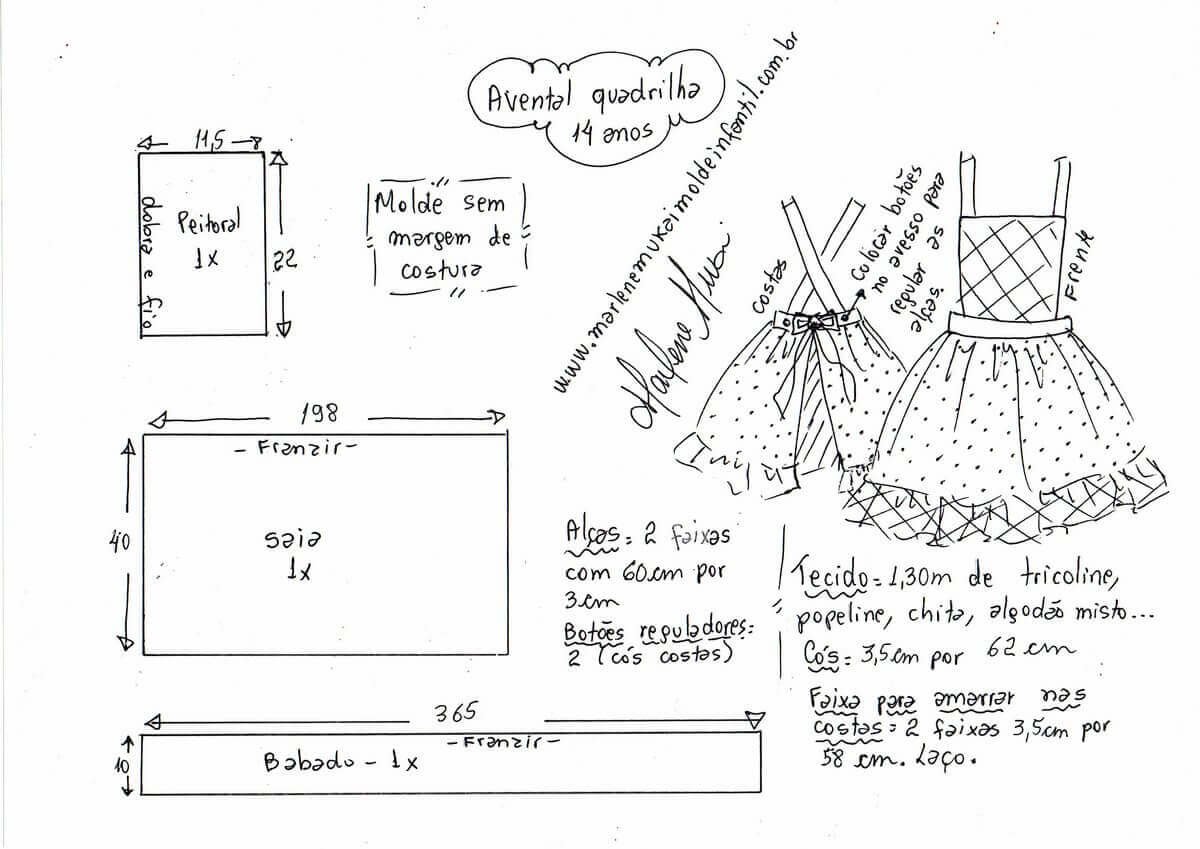 Avental quadrilha
14 anos
www.marlenemukaimoldeinfantil.com.br
11,5
dobra e fio
Peitoral
1x
22
Molde sem
margem de
costura
costas
Colocar botões
no avesso para
regular as
alças.
Frente
198
- Franzir -
40
saia
1x
Alças = 2 faixas
com 60cm por
3cm
Botões reguladores =
2 (cós costas)
Tecido = 1,30m de tricoline,
popeline, chita, algodão misto...
Cós = 3,5cm por 62 cm
Faixa para amarrar nas
costas = 2 faixas 3,5cm por
58 cm. Laço.
365
- Franzir -
10
Babado - 1x